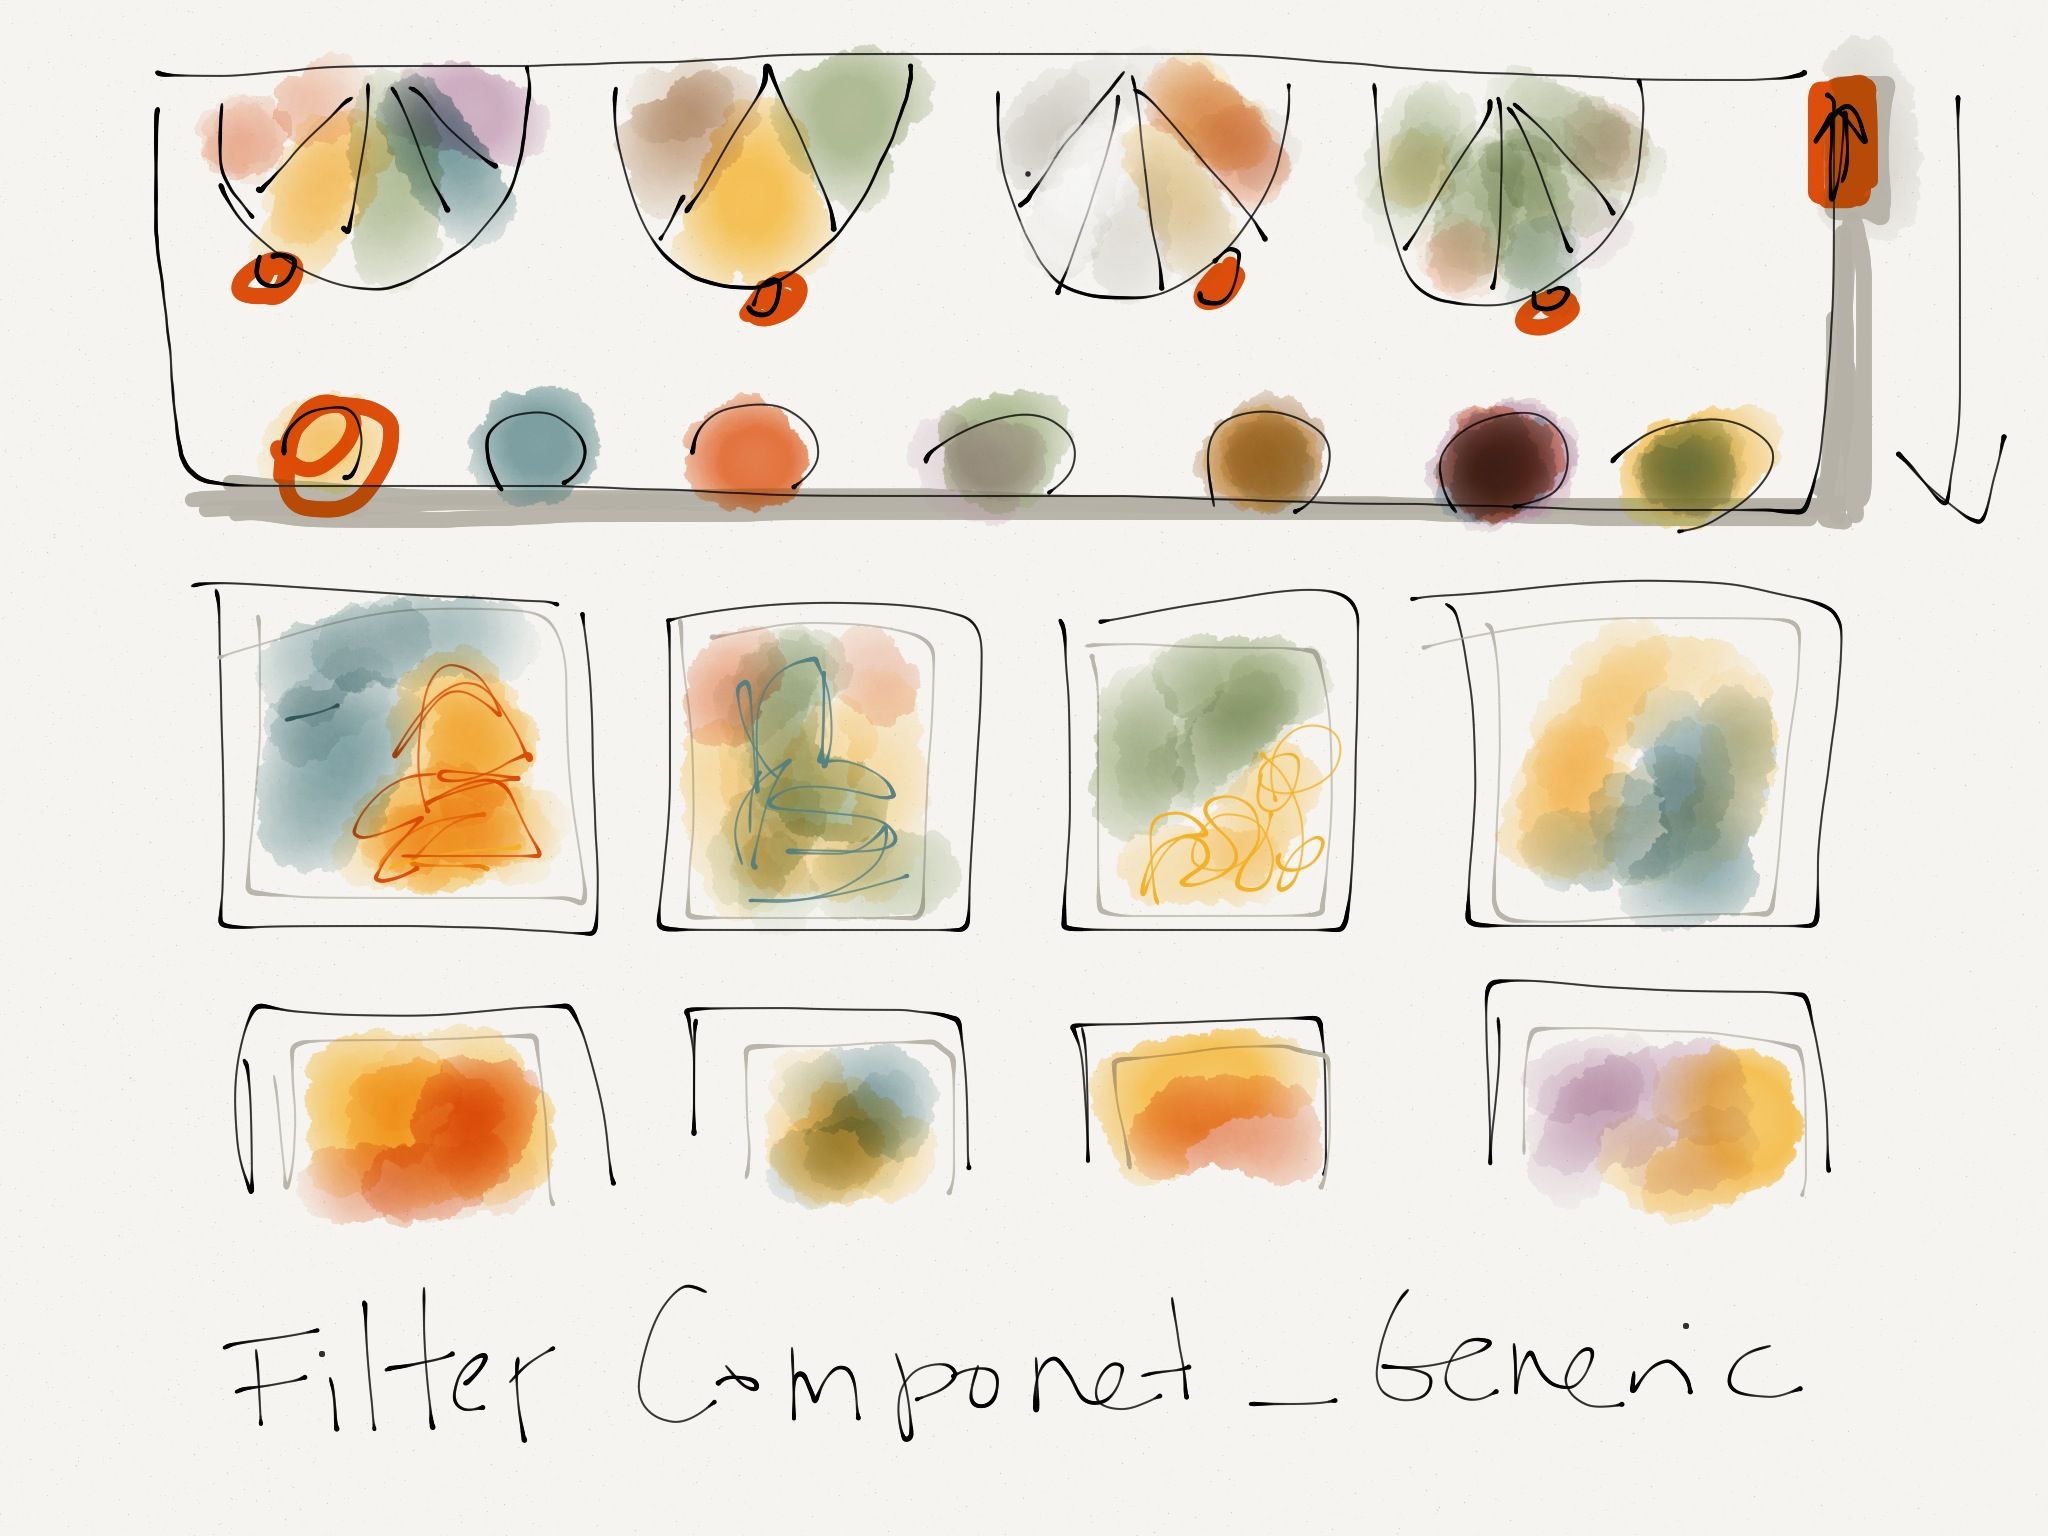 Filter Componet _ Generic